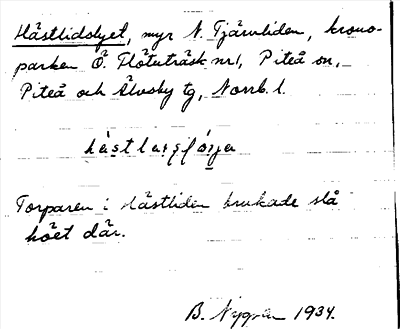 Hästlidslyet, myr N. Tjärnliden, krono-
parken Ö. Flötuträsk nr 1, Piteå sn,
Piteå och Älvsby tg, Norrb. l.
Torparen i Hästliden brukade slå
höet där.
B. Nygren 1934.